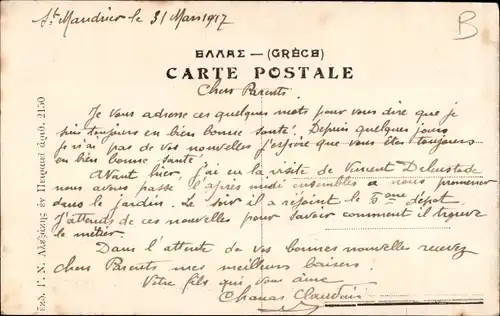 St Mandrier le 31 Mars 1917
B
ΕΛΛΑΣ — (GRÈCE)
CARTE POSTALE
Chers Parents.
Je vous adresse ces quelques mots pour vous dire que je
suis toujours en bien bonne santé. Depuis quelques jours
je n'ai pas de vos nouvelles j'espère que vous êtes toujours
en bien bonne santé.
Avant hier, j'ai eu la visite de Vincent
nous avons passé l'après midi ensembles a nous promener
dans le jardin. Le soir il a rejoint le 5eme dépot
J'attends de ces nouvelles pour savoir comment il trouve
le métier.
Dans l'attente de vos bonnes nouvelles recevez
chers Parents mes meilleurs baisers.
Votre fils qui vous aime
Claudius
ἐκδ. Γ. Ν. Ἀλεξάκης ἐν Πειραιεῖ ἀριθ. 2150